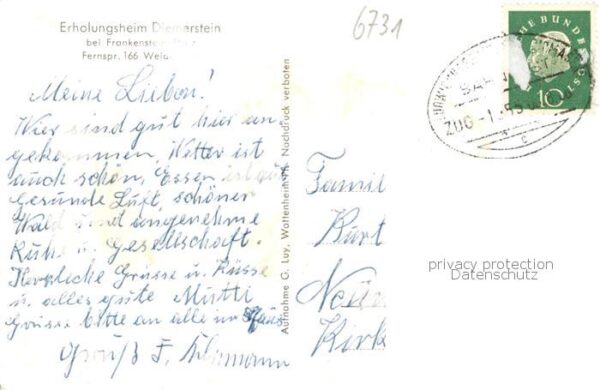 Erholungsheim Diemerstein
bei Frankenstein
Fernspr. 166
6731
Meine Lieben!
Wir sind gut hier an
gekommen, Wetter ist
auch schön, Essen ist gut
gesunde Luft, schöner
Wald und angenehme
Ruhe u. Gesellschaft.
Herzliche Grüsse u. Küsse
u. alles gute Mutti
Grüsse bitte an alle im Haus
Gruß F.
Aufnahme G. Luy, Wattenheim Nachdruck verboten
Famil
Kurt
Kirk
DEUTSCHE BUNDESPOST
10
ZUG
privacy protection
Datenschutz